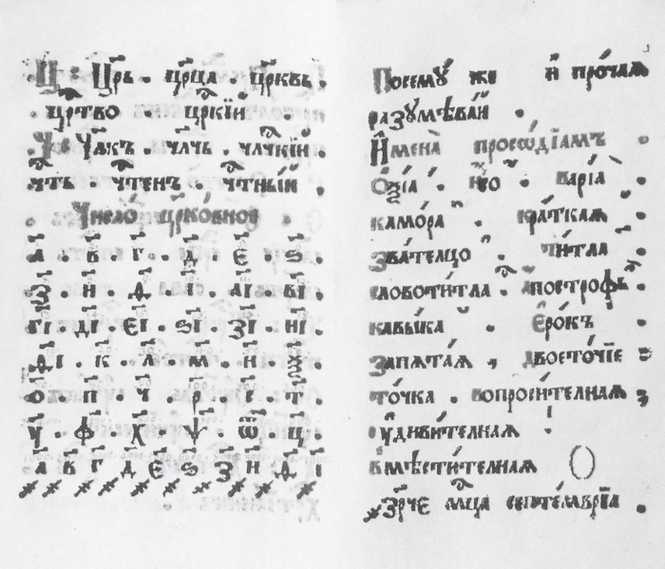 Ц : Цр҃ь . цр҃ца . цр҃квь .
цр҃тво . цр҃кїй .
Ч : Чл҃къ . чл҃чь . чл҃чкїй .
чⷭ҇ть . чⷭ҇тенъ . чⷭ҇тный .
Число̀ цр҃ко́вное .
а҃ . в҃ . г҃ . д҃ . є҃ . ѕ҃ .
з҃ . и҃ . ѳ҃ . і҃ . аі҃ . ві҃ .
гі҃ . ді҃ . єі҃ . ѕі҃ . зі҃ . иі҃ .
ѳі҃ . к҃ . л҃ . м҃ . н҃ . ѯ҃ .
о҃ . п҃ . ч҃ . р҃ . с҃ . т҃ .
у҃ . ф҃ . х҃ . ѱ҃ . ѿ҃ . ц҃ .
҂а҃ ҂в҃ ҂г҃ ҂д҃ ҂є҃ ҂ѕ҃ ҂з҃ ҂и҃ ҂ѳ҃ ҂і҃
Посемꙋ́ же и҆ про́чаѧ
разꙋмѣва́й .
И҆мена̀ просѡді́амъ .
Ѻ҆ѯі́а . и҆́со . варі́а .
камо́ра . кра́ткаѧ .
зва́телцо . ти́тла .
словоти́тла . а҆постро́фъ .
кавы́ка . є҆ро́къ .
запѧта́ѧ , двоето́чїе :
то́чка . вопроси́телнаѧ ;
ᲂу҆диви́телнаѧ !
вмѣсти́телнаѧ ()
҂зр҃че мц҃а септе́мврїа .